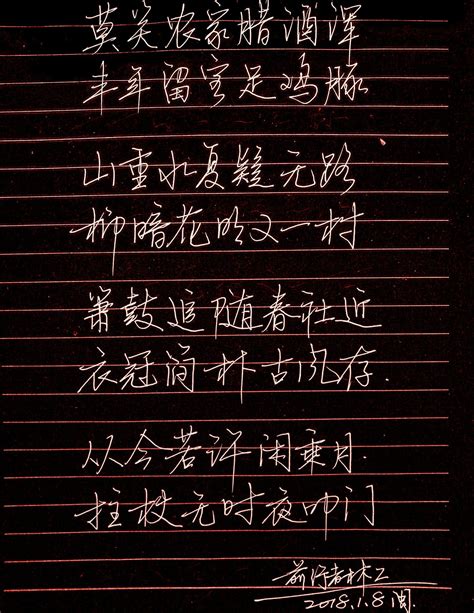 莫笑农家腊酒浑
丰年留客足鸡豚
山重水复疑无路
柳暗花明又一村
箫鼓追随春社近
衣冠简朴古风存.
从今若许闲乘月.
拄杖无时夜叩门
前行者林工
2018.1.8闽.